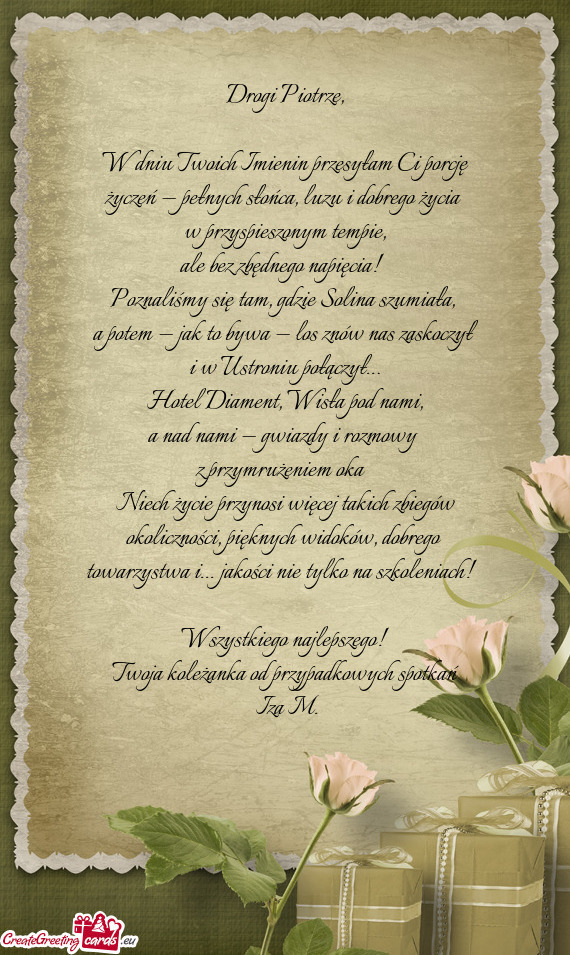 Drogi Piotrze,
W dniu Twoich Imienin przesyłam Ci porcję
życzeń – pełnych słońca, luzu i dobrego życia
w przyspieszonym tempie,
ale bez zbędnego napięcia!
Poznaliśmy się tam, gdzie Solina szumiała,
a potem – jak to bywa – los znów nas zaskoczył
i w Ustroniu połączył...
Hotel Diament, Wisła pod nami,
a nad nami – gwiazdy i rozmowy
z przymrużeniem oka
Niech życie przynosi więcej takich zbiegów
okoliczności, pięknych widoków, dobrego
towarzystwa i... jakości nie tylko na szkoleniach!
Wszystkiego najlepszego!
Twoja koleżanka od przypadkowych spotkań
Iza M.
CreateGreeting cards .eu